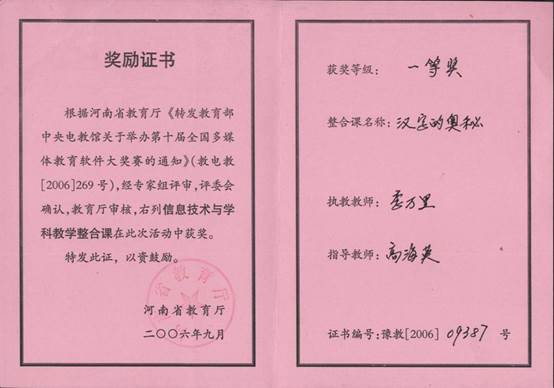 奖励证书
根据河南省教育厅《转发教育部
中央电教馆关于举办第十届全国多媒
体教育软件大奖赛的通知》(教电教
[2006]269号),经专家组评审,评委会
确认,教育厅审核,右列信息技术与学
科教学整合课在此次活动中获奖。
特发此证,以资鼓励。
河南省教育厅
二〇〇六年九月
获奖等级: 一等奖
整合课名称: 汉字的奥秘
执教教师: 万里
指导教师: 高海英
证书编号:豫教[2006] 09387 号